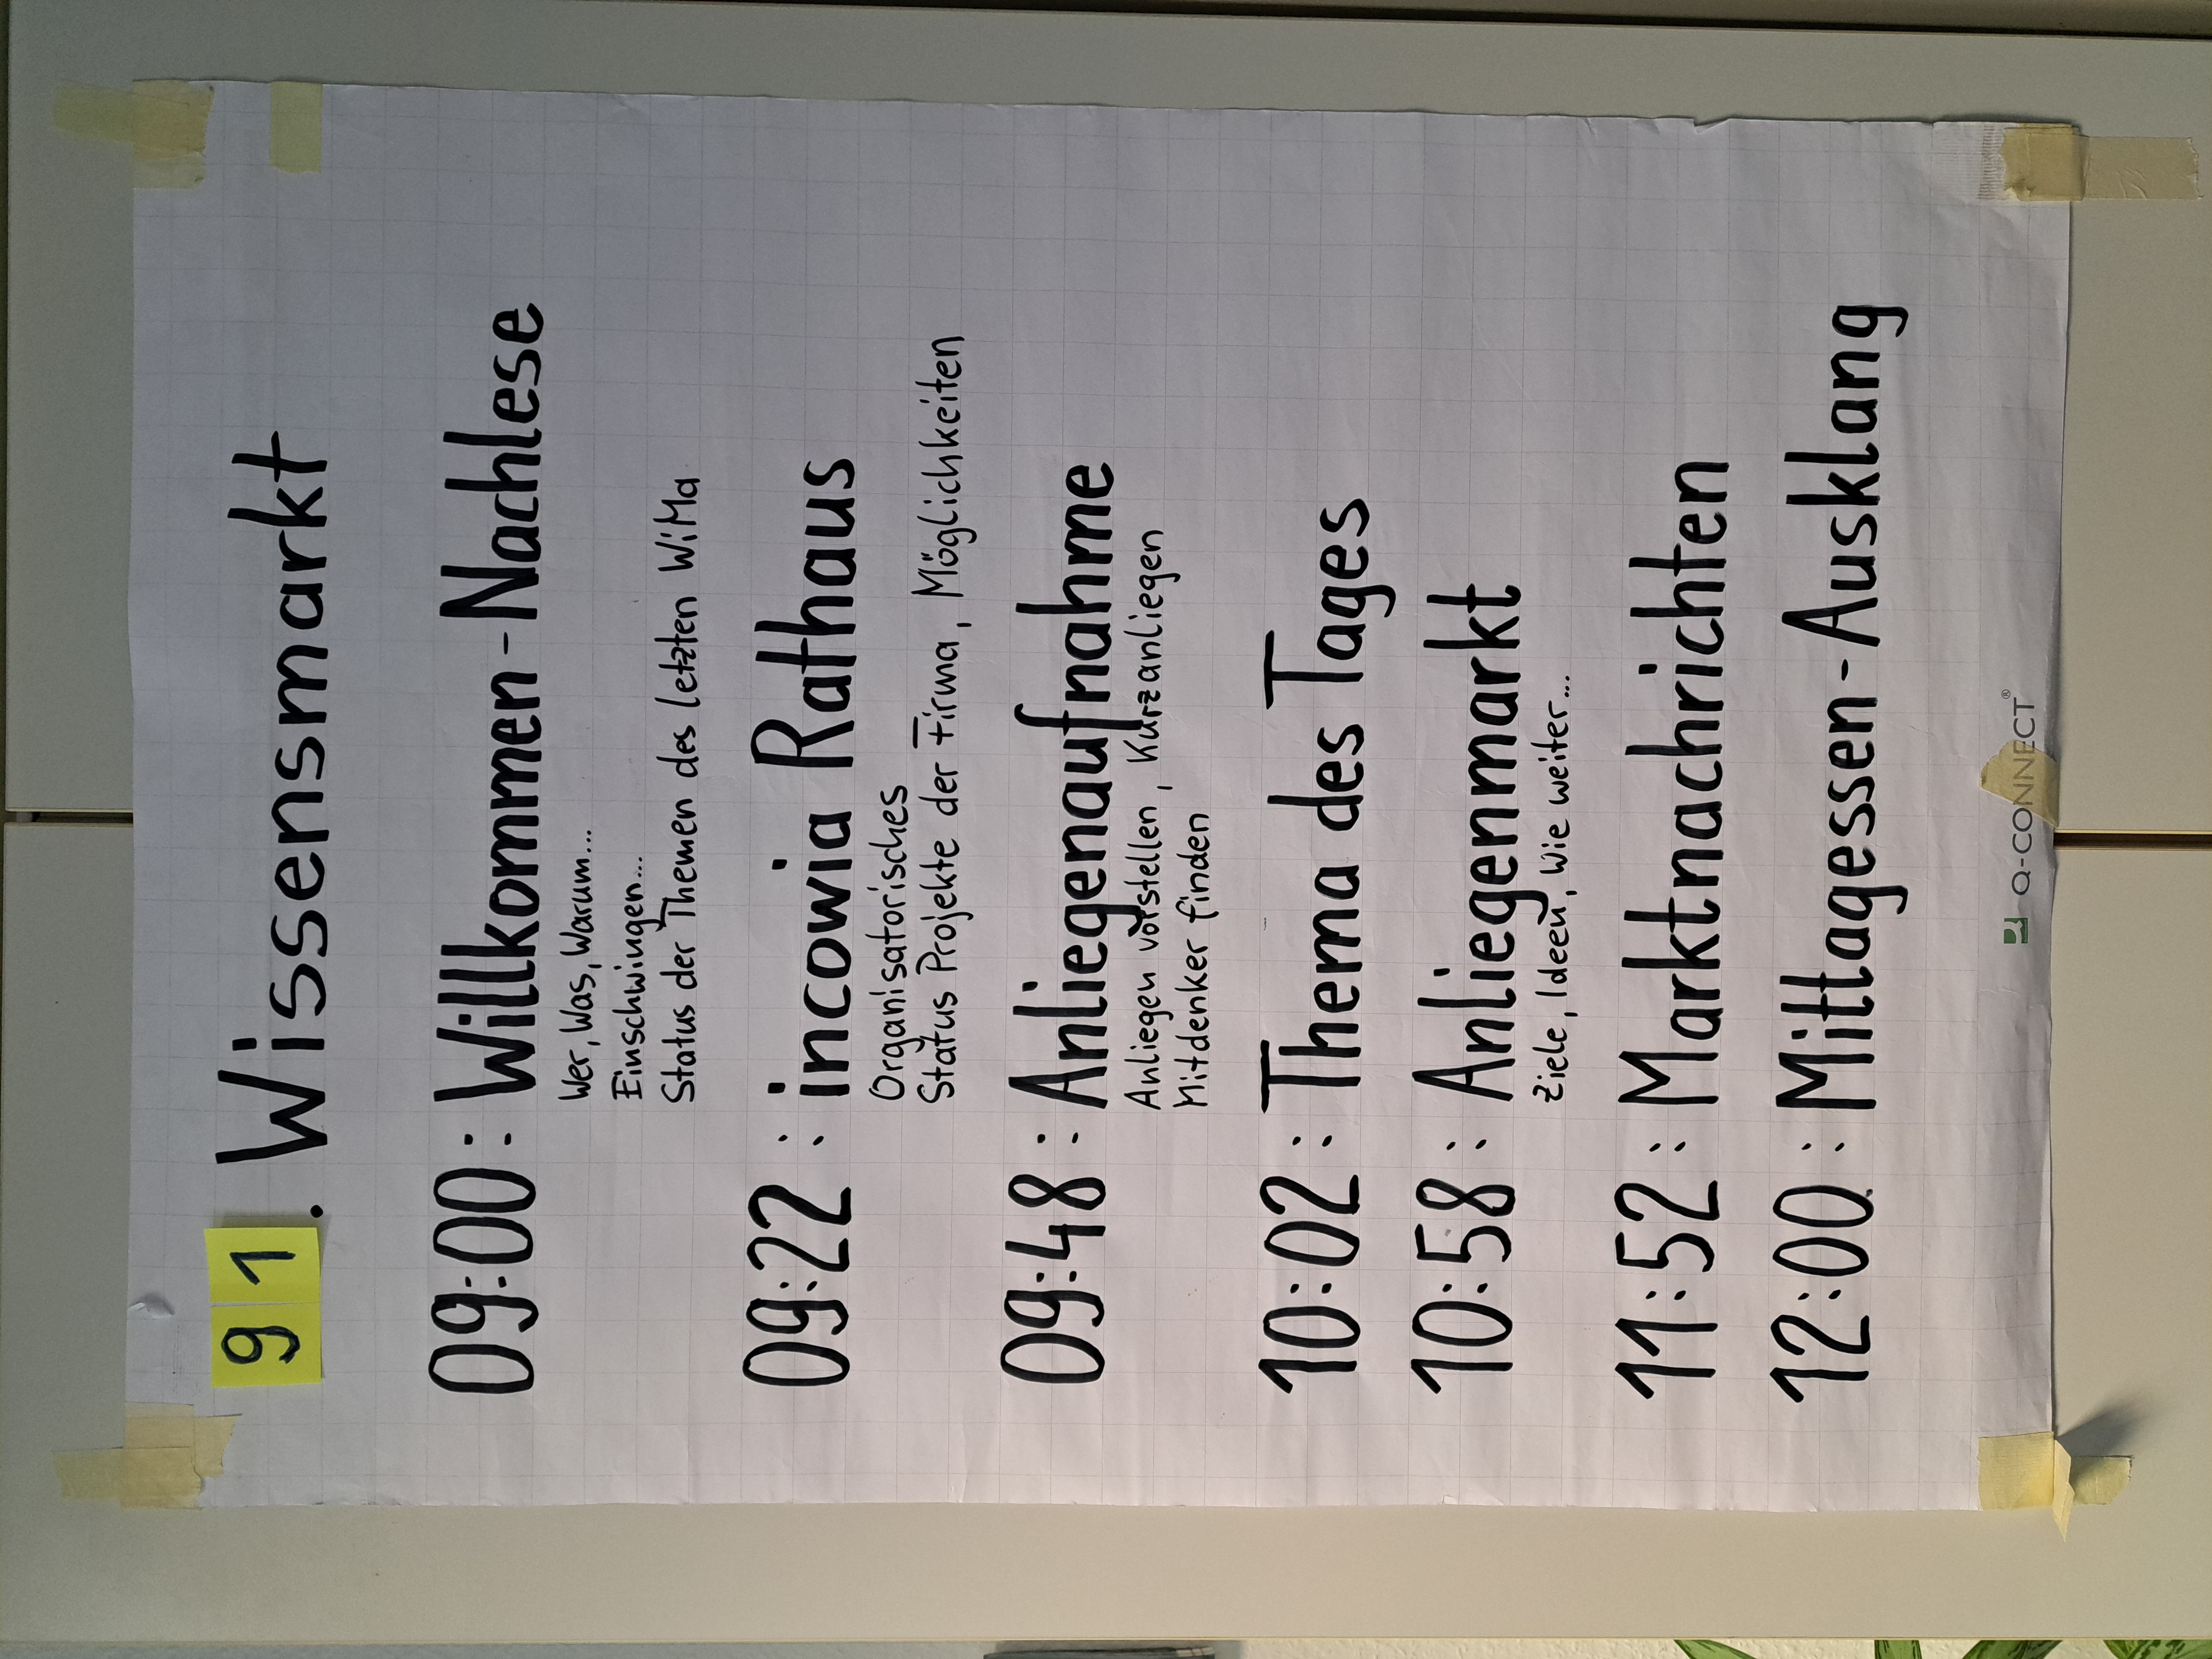 91. Wissensmarkt
09:00: Willkommen-Nachlese
Wer, Was, Warum...
Einschwingen...
Status der Themen des letzten WiMa
09:22: incowia Rathaus
Organisatorisches
Status Projekte der Firma, Möglichkeiten
09:48: Anliegenaufnahme
Anliegen vorstellen, Kurzanliegen
Mitdenker finden
10:02: Thema des Tages
10:58: Anliegenmarkt
Ziele, Ideen, Wie weiter...
11:52: Marktnachrichten
12:00: Mittagessen-Ausklang
Q-CONNECT®